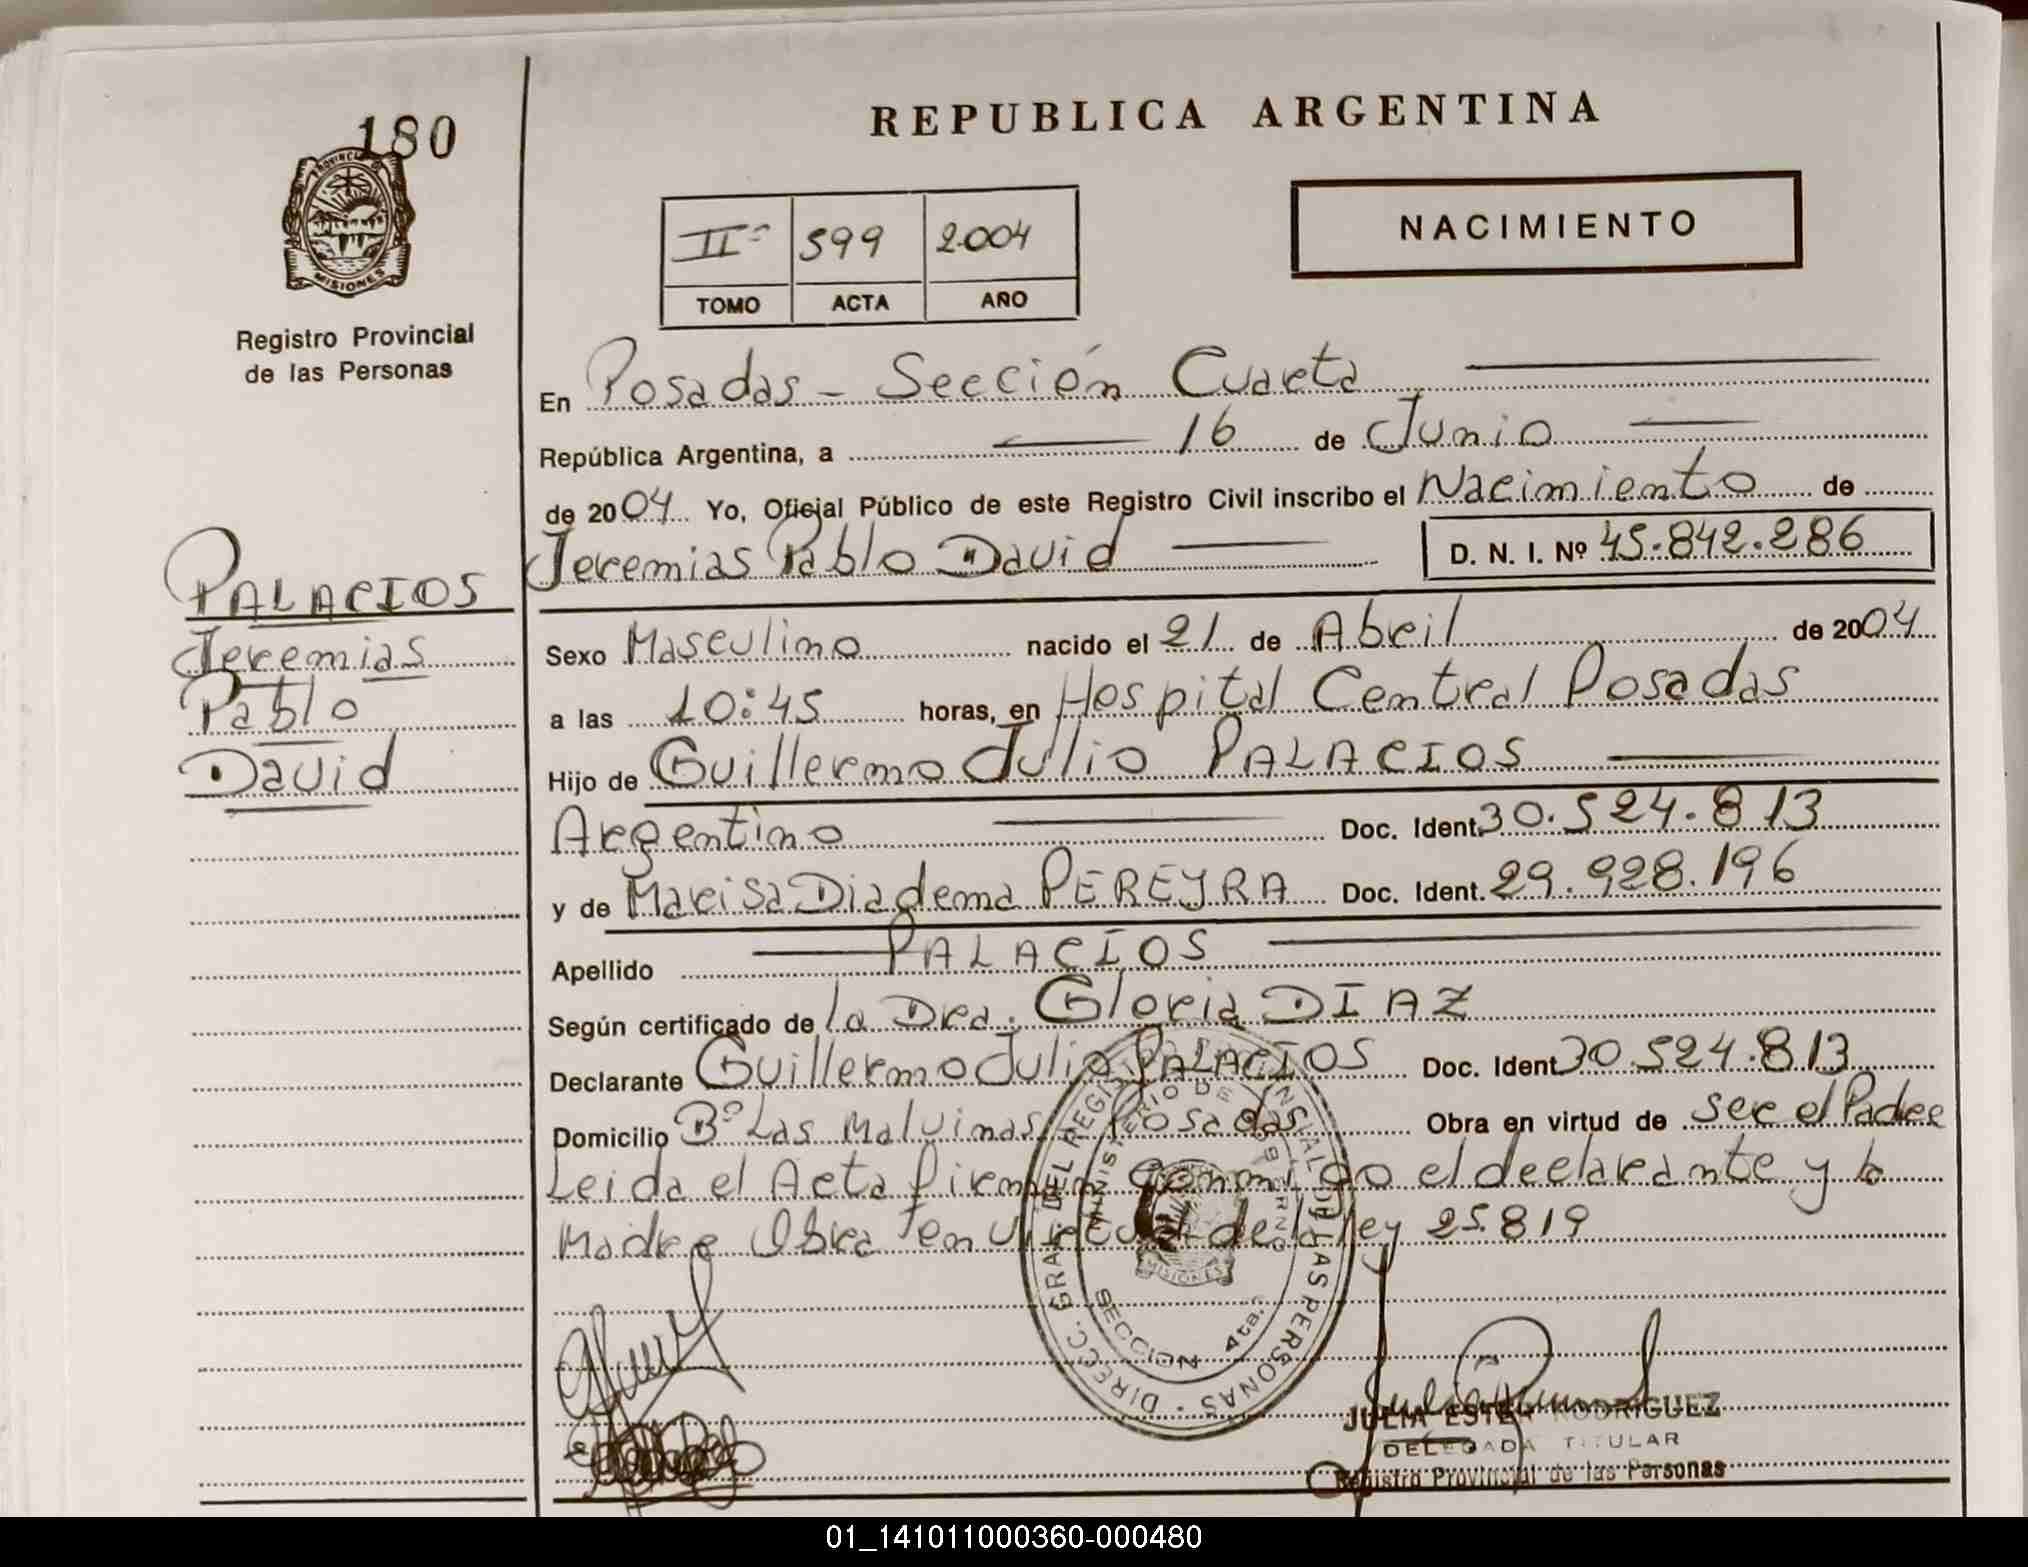 180
PROVINCIA DE
MISIONES
Registro Provincial
de las Personas
PALACIOS
Jeremias
Pablo
David
REPUBLICA ARGENTINA
NACIMIENTO
IIº 599 2.004
TOMO ACTA AÑO
En Posadas - Sección Cuarta
República Argentina, a 16 de Junio
de 2004 Yo, Oficial Público de este Registro Civil inscribo el Nacimiento de
Jeremias Pablo David D. N. I. Nº 45.842.286
Sexo Masculino nacido el 21 de Abril de 2004
a las 10:45 horas, en Hospital Central Posadas
Hijo de Guillermo Julio PALACIOS
Argentino Doc. Ident. 30.524.813
y de Marisa Diadema PEREYRA Doc. Ident. 29.928.196
Apellido PALACIOS
Según certificado de la Dra. Gloria DIAZ
Declarante Guillermo Julio PALACIOS Doc. Ident. 30.524.813
Domicilio Bº Las Malvinas Posadas Obra en virtud de ser el Padre
Leida el Acta firman conmigo el declarante y la
Madre Obra en virtud de la ley 25.819
DIRECC. GRAL. DEL REGISTRO PROVINCIAL DE LAS PERSONAS
MINISTERIO DE GOBIERNO
MISIONES
SECCION 4ta.
JULIA ESTER RODRIGUEZ
DELEGADA TITULAR
Registro Provincial de las Personas
01_141011000360-000480